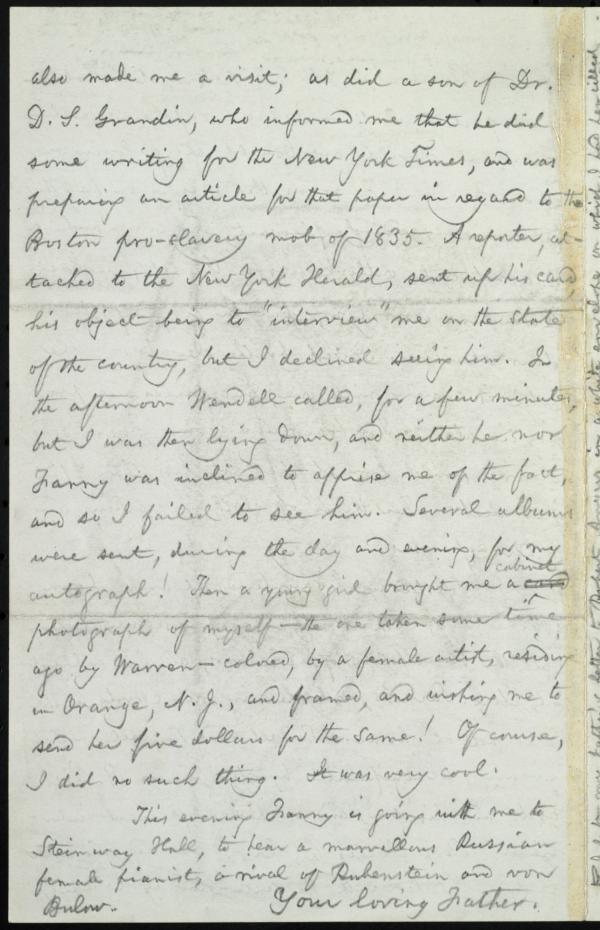 also made me a visit; as did a son of Dr.
D. S. Grandin, who informed me that he did
some writing for the New York Times, and was
preparing an article for that paper in regard to the
Boston pro-slavery mob of 1835. A reporter, at-
tached to the New York Herald, sent up his card,
his object being to "interview" me on the state
of the country, but I declined seeing him. In
the afternoon Wendell called, for a few minutes,
but I was then lying down, and neither he nor
Fanny was inclined to apprise me of the fact,
and so I failed to see him. Several albums
were sent, during the day and evening, for my
autograph! Then a young girl brought me a cabinet
photograph of myself—the one taken some time
ago by Warren—colored, by a female artist, residing
in Orange, N. J., and framed, and wishing me to
send her five dollars for the same! Of course,
I did no such thing. It was very cool.
This evening Fanny is going with me to
Steinway Hall, to hear a marvellous Russian
female pianist, a rival of Rubenstein and von
Bulow. Your loving Father.